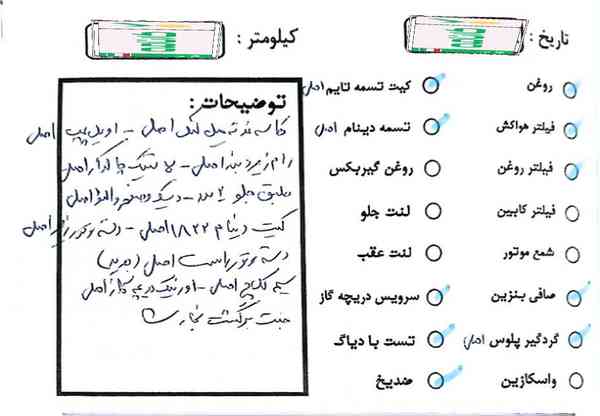 تاریخ :
کیلومتر :
روغن
فیلتر هواکش
فیلتر روغن
فیلتر کابین
شمع موتور
صافی بنزین
گردگیر پلوس اصلی
واسکازین
کیت تسمه تایم اصلی
تسمه دینام اصلی
روغن گیربکس
لنت جلو
لنت عقب
سرویس دریچه گاز
تست با دیاگ
ضدیخ
توضیحات :
کاسه نمد ته میل لنگ اصلی - اویل پمپ اصلی
اصلی - لاستیک چاکدار اصلی
جلو ۲ عدد - دیسک و صفحه والئو اصلی
کیت دینام ۱۸۲۲ اصلی - دسته موتور اصلی
دسته موتور راست اصلی (جدید)
سیم کلاچ اصلی - اورینگ دریچه گاز اصلی